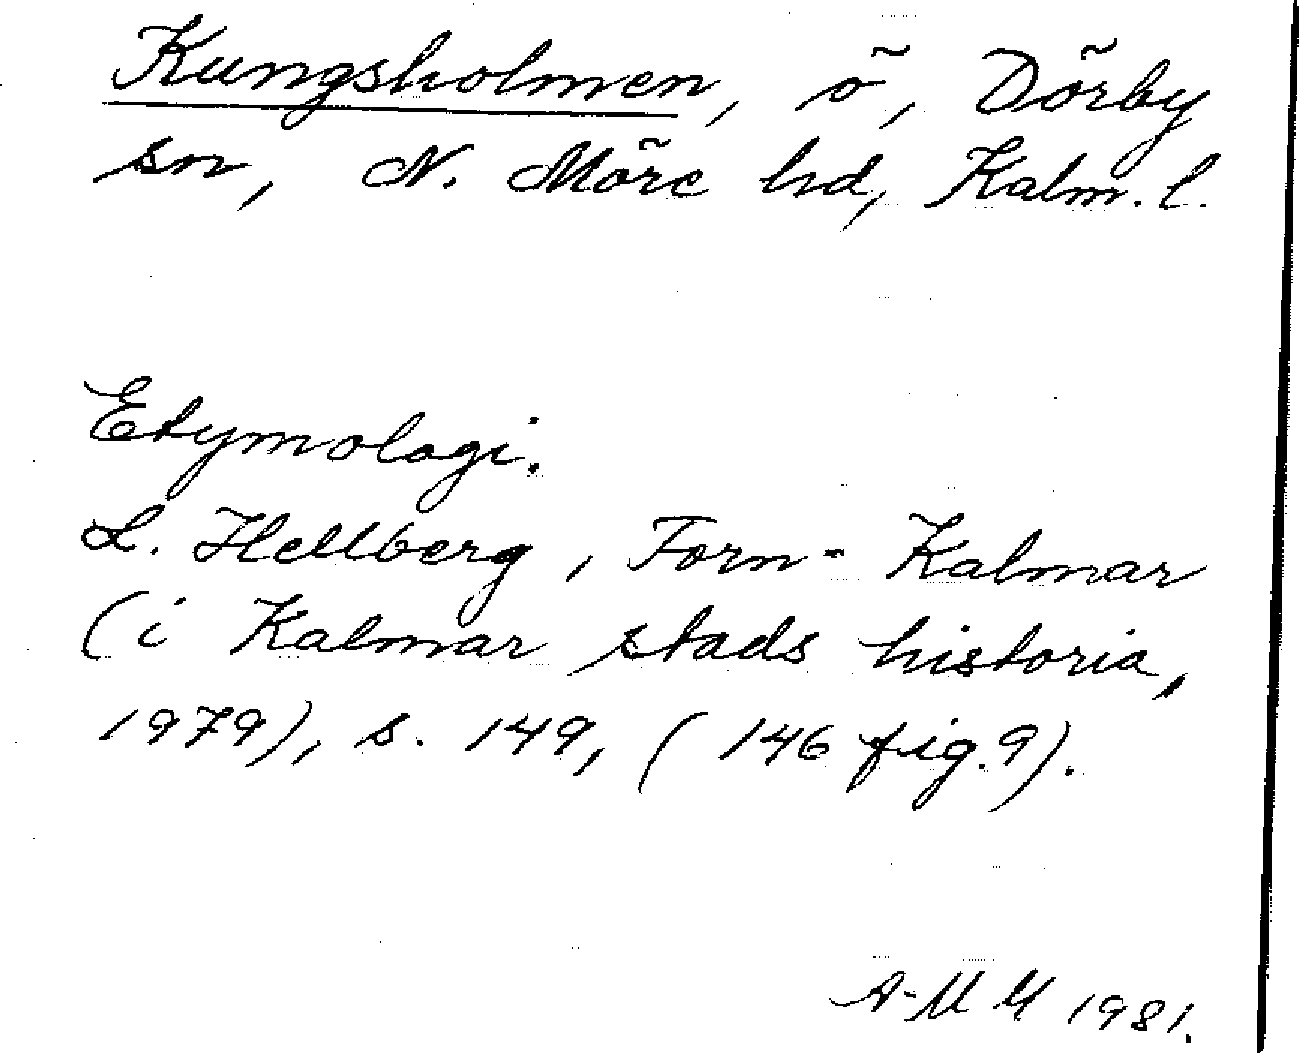 Kungsholmen, ö, Dörby
sn, N. Möre hd, Kalm. l.
Etymologi.
L. Hellberg, Forn-Kalmar
(i Kalmar stads historia,
1979), s. 149, (146 fig. 9).
A-M H 1981.